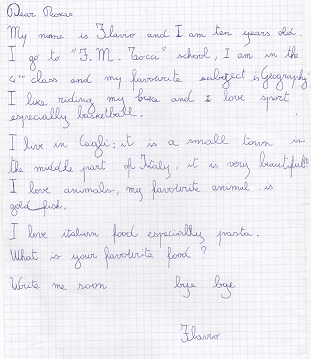 Dear Roxas
My name is Flavio and I am ten years old.
I go to "F. M. Tocci" school, I am in the
4th class and my favourite subject is Geography.
I like riding my bike and I love sport
especially basketball.
I live in Cagli: it is a small town in
the middle part of Italy, it is very beautiful!!!
I love animals, my favourite animal is
gold fish.
I love italian food especially pasta.
What is your favourite food ?
Write me soon bye bye
Flavio